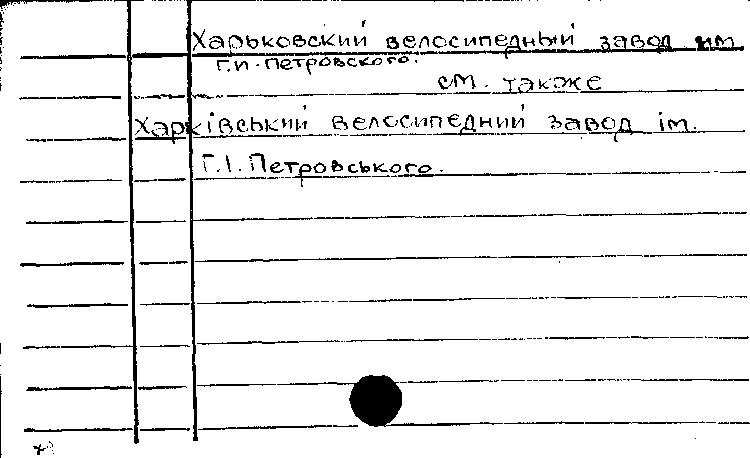 Харьковский велосипедный завод им.
Г.И. Петровского.
см. также
Харківський велосипедний завод ім.
Г.І. Петровського.